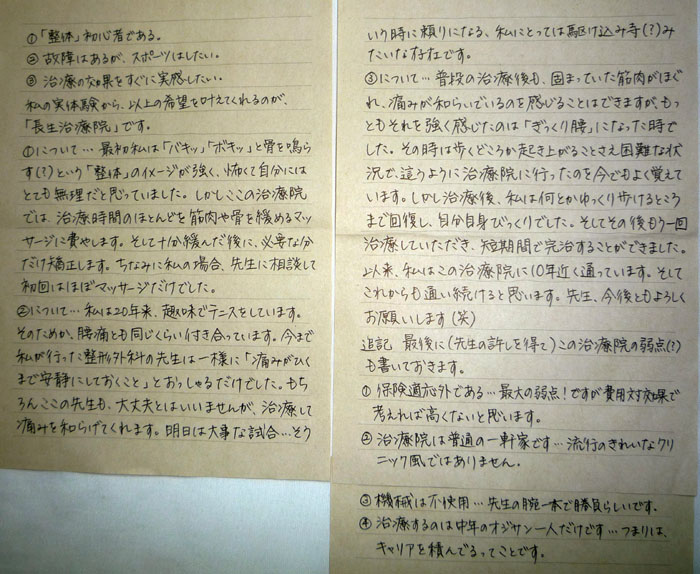 ①「整体」初心者である。
② 故障はあるが、スポーツはしたい。
③ 治療の効果をすぐに実感したい。
私の実体験から、以上の希望を叶えてくれるのが、
「長生治療院」です。
①について…最初私は「バキッ」「ボキッ」と骨を鳴ら
す(?)という「整体」のイメージが強く、怖くて自分には
とても無理だと思っていました。しかしここの治療院
では、治療時間のほとんどを筋肉や骨を緩めるマッ
サージに費やします。そして十分緩んだ後に、必要な分
だけ矯正します。ちなみに私の場合、先生に相談して
初回はほぼマッサージだけでした。
②について…私は20年来、趣味でテニスをしています。
そのためか、腰痛とも同じくらい付き合っています。今まで
私が行った整形外科の先生は一様に「痛みがひく
まで安静にしておくこと」とおっしゃるだけでした。もち
ろんここの先生も、大丈夫とはいいませんが、治療して
痛みを和らげてくれます。明日は大事な試合…そう
いう時に頼りになる、私にとっては駆け込み寺(?)み
たいな存在です。
③について…普段の治療後も、固まっていた筋肉がほぐ
れ、痛みが和らいでいるのを感じることはできますが、もっ
ともそれを強く感じたのは「ぎっくり腰」になった時で
した。その時は歩くどころか起き上がることさえ困難な状
況で、這うように治療院に行ったのを今でもよく覚えて
います。しかし治療後、私は何とかゆっくり歩けるところ
まで回復し、自分自身びっくりでした。そしてその後もう一回
治療していただき、短期間で完治することができました。
以来、私はこの治療院に10年近く通っています。そして
これからも通い続けると思います。先生、今後ともよろしく
お願いします(笑)
追記 最後に(先生の許しを得て)この治療院の弱点(?)
も書いておきます。
① 保険適応外である…最大の弱点!ですが費用対効果で
考えれば高くないと思います。
② 治療院は普通の一軒家です…流行のきれいなクリ
ニック風ではありません。
③ 機械は不使用…先生の腕一本で勝負らしいです。
④ 治療するのは中年のオジサン一人だけです…つまりは、
キャリアを積んでるってことです。